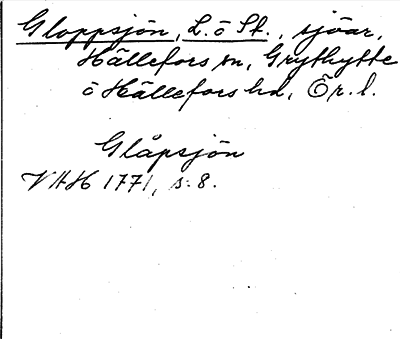 Gloppsjön, L. o St., sjöar,
Hällefors sn, Grythytte
o Hällefors hd, Ör. l.
Glåpsjön
VAH 1771, s. 8.